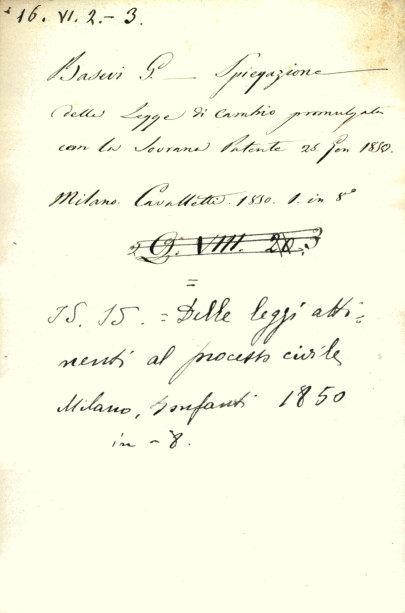 16. VI. 2.-3.
Basevi G. — Spiegazione
della Legge di Cambio promulgata
con la Sovrana Patente 25 Gen 1850.
Milano. Cavalletti. 1850. 1. in 8°
Q. VIII. 3
=
15. = Delle leggi atti=
nenti al processo civile
Milano, Bonfanti 1850
in - 8.